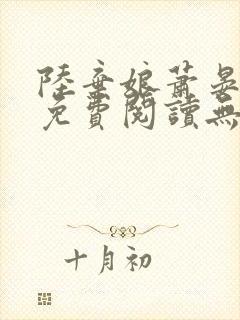 陸棄娘蕭晏
免費閱讀無
十月初